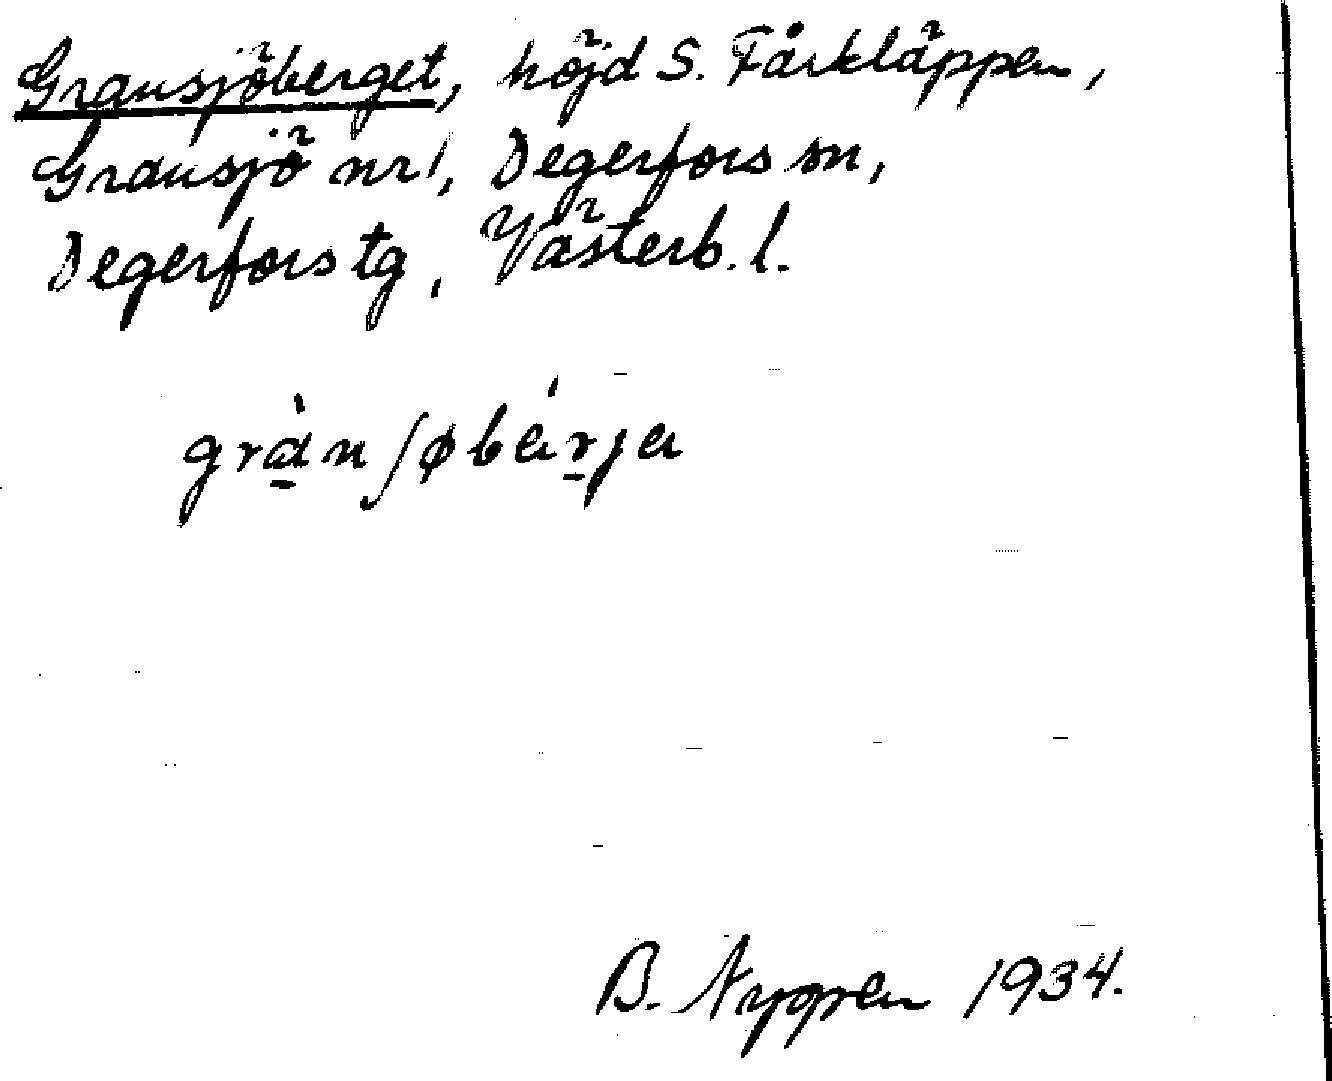 Gransjöberget, höjd S. Fårkläppen,
Gransjö nr 1, Degerfors sn,
Degerfors tg, Västerb. l.
grànʃøbárja
B. Nygren 1934.